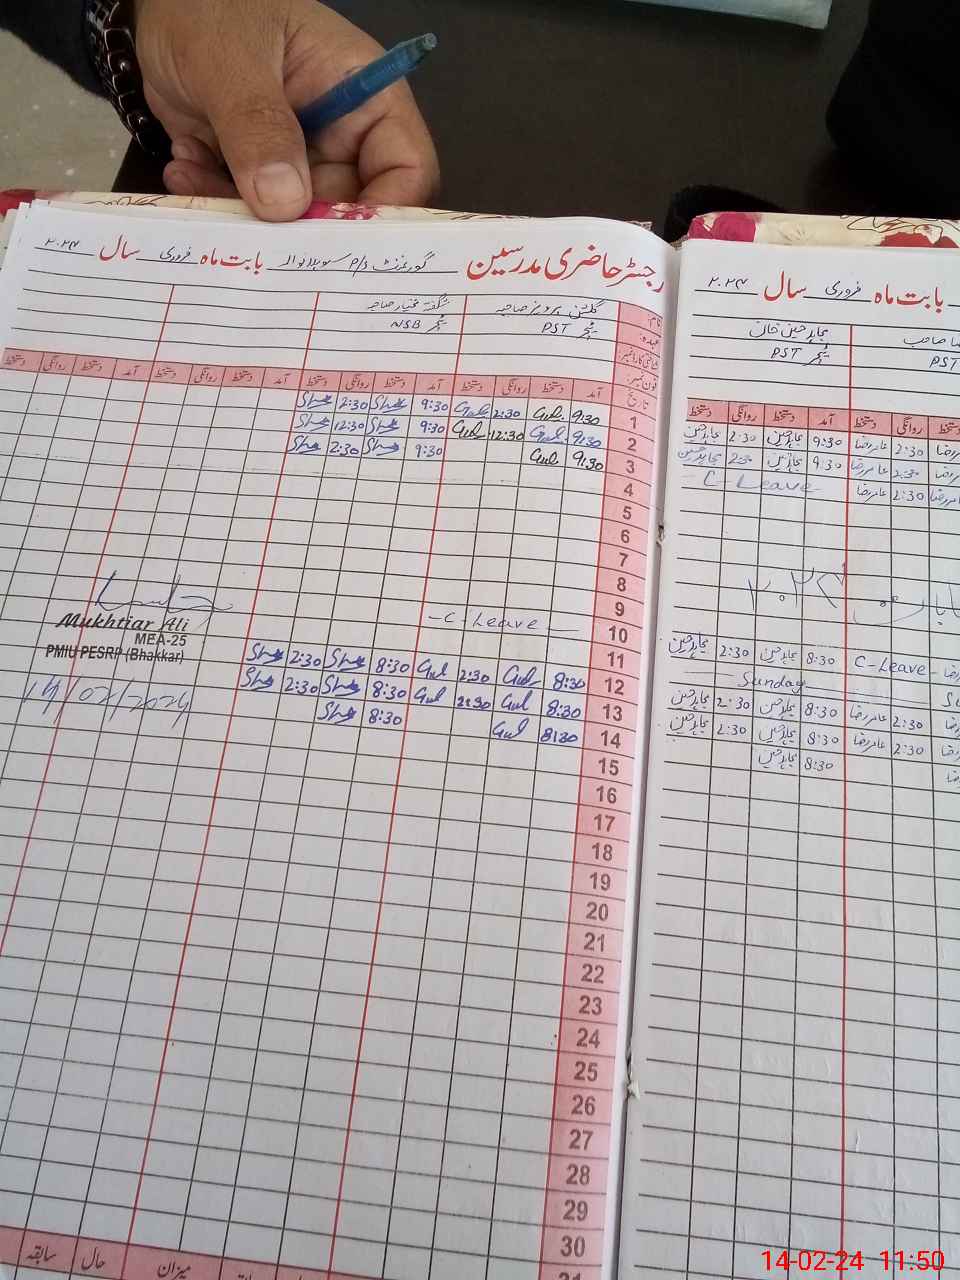 رجسٹر حاضری مدرسین گورنمنٹ P/S بابت ماہ فروری سال ۲۰۲۴
نام: گلشن پرویز صاحبہ شگفتہ مختیار صاحبہ
عہدہ: ٹیچر PST ٹیچر NSB
شناختی کارڈ نمبر:
فون نمبر:
تاریخ آمد دستخط روانگی دستخط آمد دستخط روانگی دستخط آمد دستخط روانگی دستخط
1 9:30 Gul 2:30 Gul 9:30 2:30
2 9:30 Gul 12:30 Gul 9:30 12:30
3 9:30 Gul 9:30 2:30
4
5
6
7
8
9
10 - C-Leave -
11
12 8:30 Gul 2:30 Gul 8:30 2:30
13 8:30 Gul 2:30 Gul 8:30 2:30
14 8:30 Gul 8:30
15
16
17
18
19
20
21
22
23
24
25
26
27
28
29
30
31
میزان حال سابقہ
Mukhtiar Ali
MEA-25
PMIU PESRP (Bhakkar)
14/02/2024
بابت ماہ فروری سال ۲۰۲۴
صاحب مجاہد حسین خان
PST ٹیچر PST
دستخط روانگی دستخط آمد دستخط روانگی دستخط
عامر رضا 2:30 عامر رضا 9:30 مجاہد حسین 2:30 مجاہد حسین
عامر رضا 2:30 عامر رضا 9:30 مجاہد حسین 2:30 مجاہد حسین
عامر رضا 2:30 عامر رضا C-Leave
۲۰۲۴
C-Leave 8:30 مجاہد حسین 2:30 مجاہد حسین
Sunday
2:30 عامر رضا 8:30 مجاہد حسین 2:30 مجاہد حسین
2:30 عامر رضا 8:30 مجاہد حسین 2:30 مجاہد حسین
8:30 مجاہد حسین
14-02-24 11:50